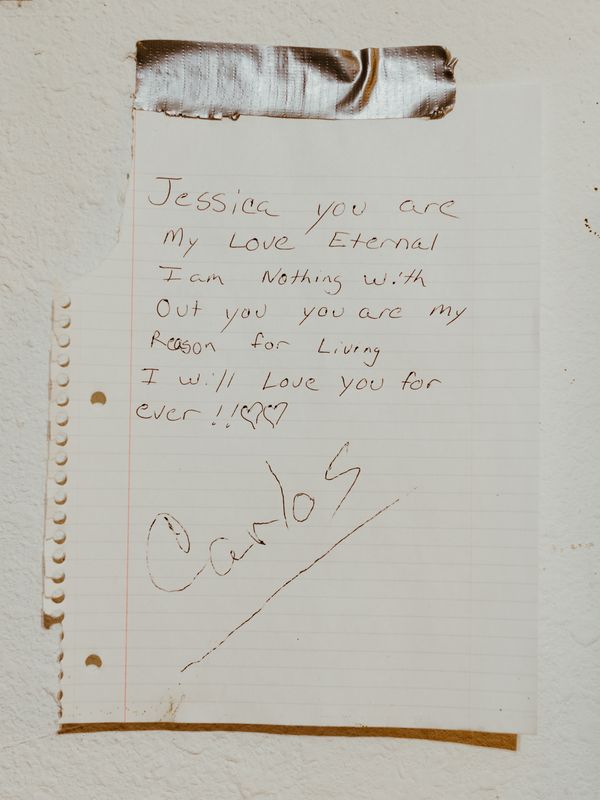 Jessica you are
My Love Eternal
I am Nothing with
Out you you are my
Reason for Living
I will Love you for
ever !!♡♡
Carlos